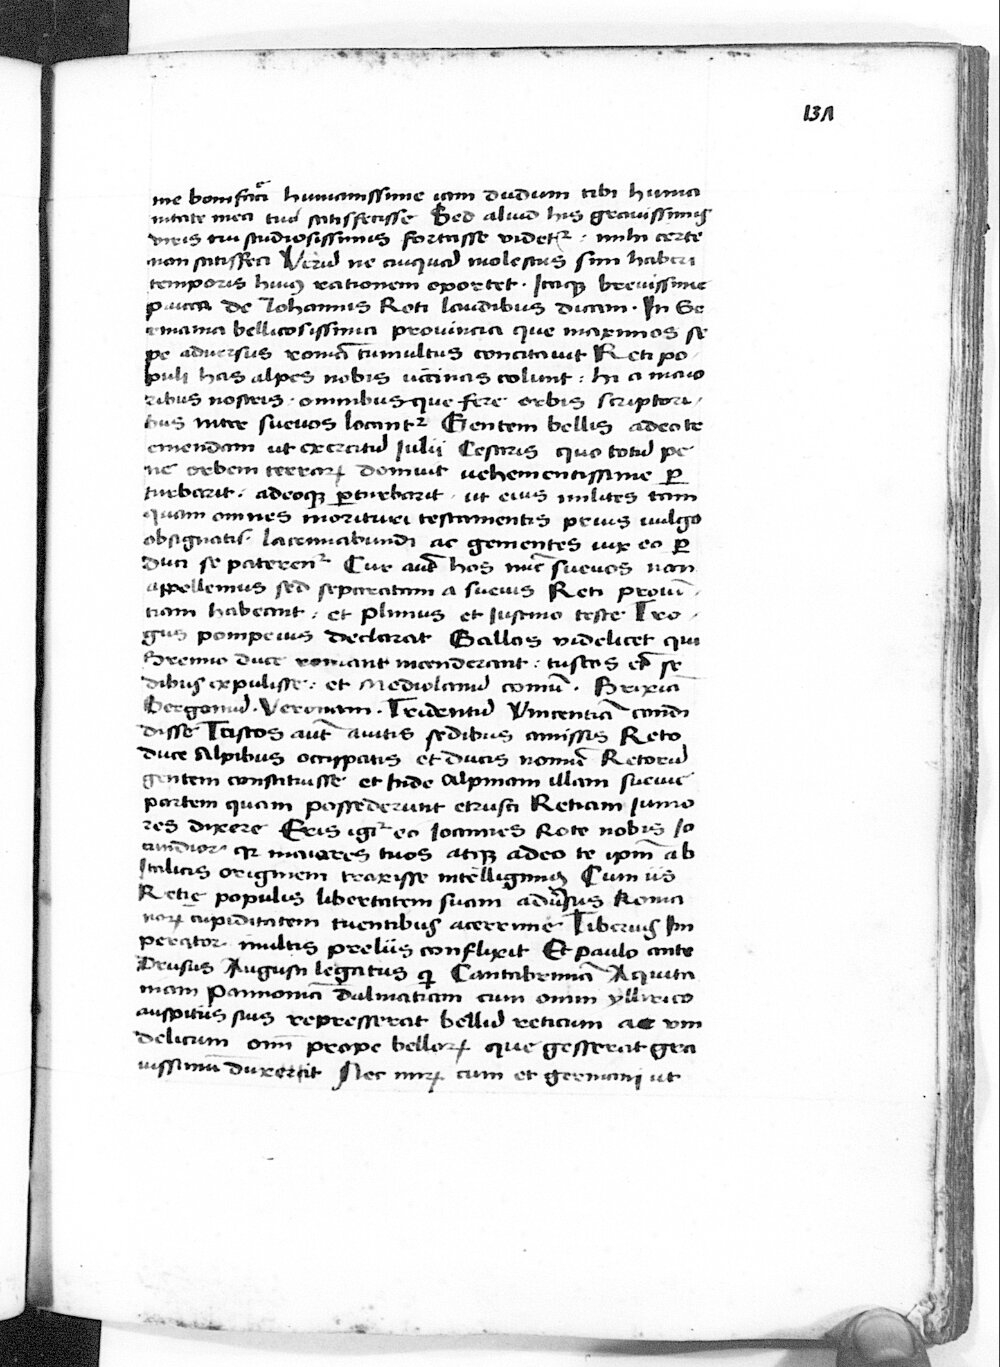 131
me bonifaci humanissime iam dudum tibi huma
nitate mea tua satisfecisse Sed aliud his gravissimis
viris tui studiosissimis fortasse videtʳ : mihi certe
non satisfeci Verū ne cuiquā molestus sim haberi
temporis huiꝰ rationem oportet . Itaqꝫ brevissime
pauca de Iohannis Roti laudibus dicam . In Ge
rmania bellicosissima provincia que maximos se
pe adversus romā tumultus concitavit Reti po
puli has alpes nobis vicinas colunt : hi a maio
ribus nostris . omnibusque fere orbis scriptori
bus inter suevos locantʳ Gentem bellis adeo te
emendam ut exercitū Iulii Cesaris quo totū pe
ne orbem terrarꝝ domuit vehementissime ꝑ
turbarit . adeoqꝫ ꝑturbarit . ut eius milites tam
quam omnes morituri testamentis prius vulgo
obsignatis . lacrimabundi ac gementes vix eo ꝑ
duci se paterentʳ Cur autē hos nūc suevos non
appellemus sed separatam a suevis Reti provin
tiam habeant : et Plinius et Iustino teste Tro
gus pompeius declarat Gallos videlicet qui
Brenno duce romam incenderant : tuscos ex se
dibus expulisse : et Mediolanū comū . Brixiā
Bergomū . Veronam . Tridentū Vincentiā condi
disse Tuscos autē avitis sedibus amissis Reto
duce Alpibus occupatis et ducis nomine Retorū
gentem constituisse et Inde Alpinam illam suevie
partem quam possederunt etrusci Retiam Iunio
res dixere Eris igiʳ eo Ioannes Rote nobis Io
cundior qꝫ maiores tuos atqꝫ adeo te ipm̄ ab
Italicis originem traxisse intelligimus Cum iis
Retie populis libertatem suam adversus Roma
norꝝ cupiditatem tuentibus acerrime Tiberius Im
perator multis preliis conflixit Et paulo ante
Drusus Augusti legatus qͥ Cantabriam Aquita
niam Pannoniā dalmatiam cum omni yllirico
auspitiis suis represserat bellū reticum ac vin
delicum omn̄ prope bellorꝝ que gesserat gra
vissimū duxerat Nec mirꝝ cum et germani ut